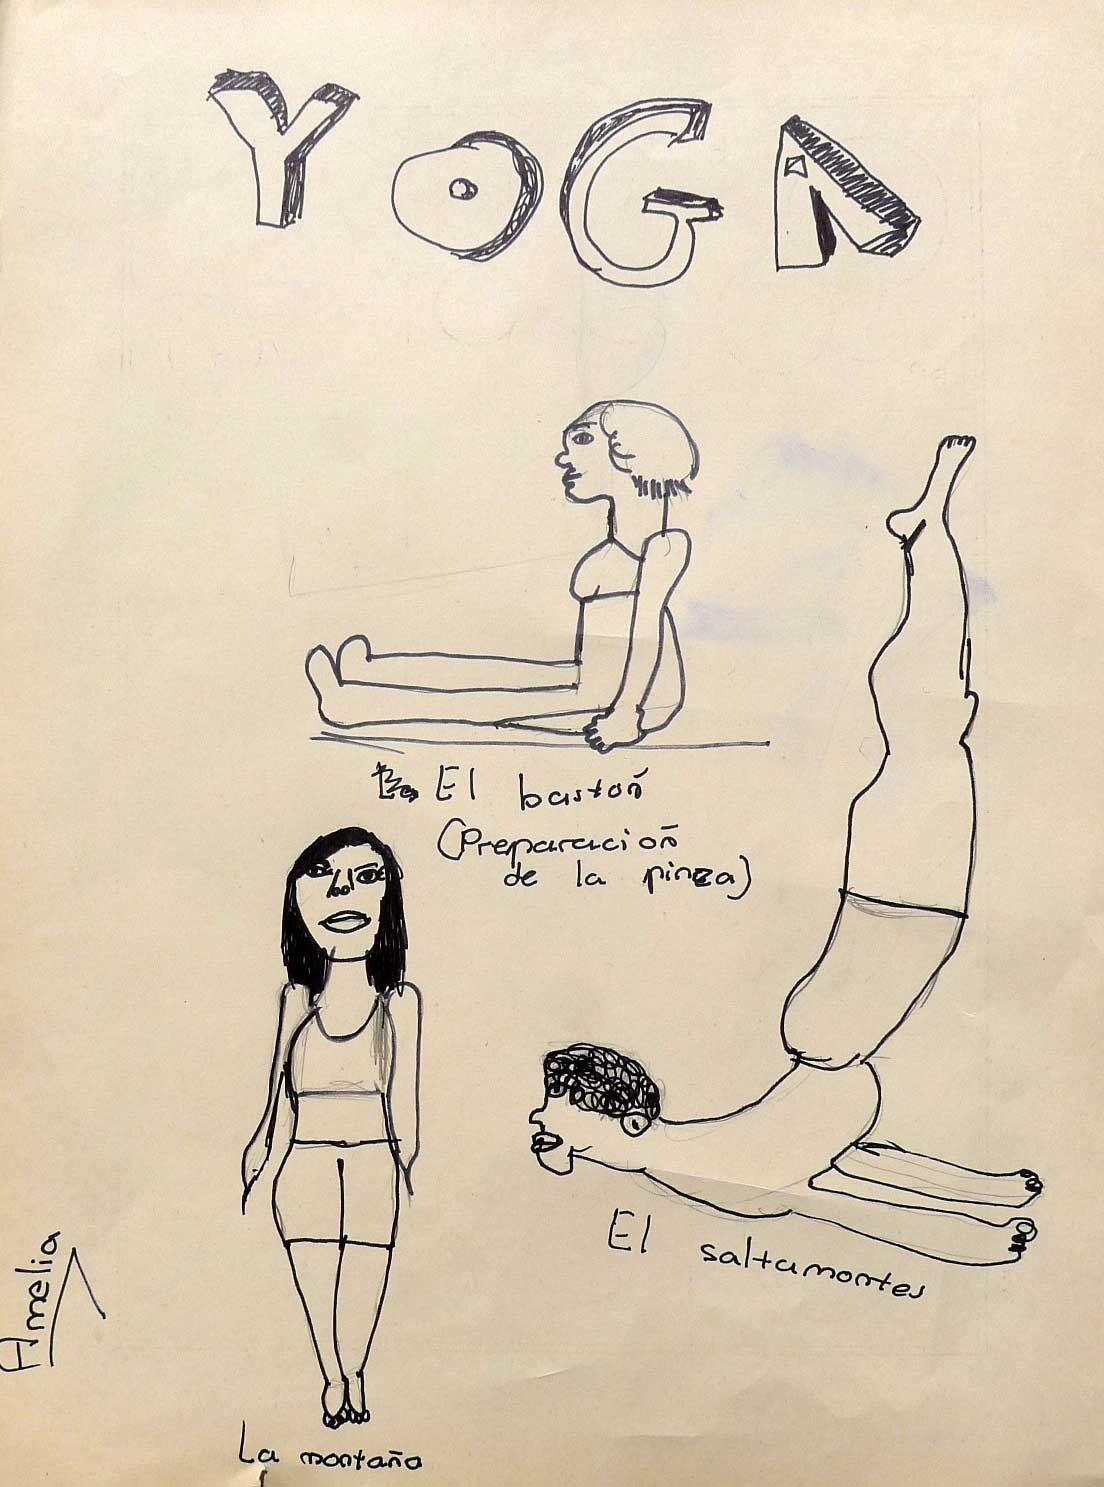 YOGA
El bastoñ
(Preparacioñ
de la pinza)
El saltamontes
La montaña
Amelia